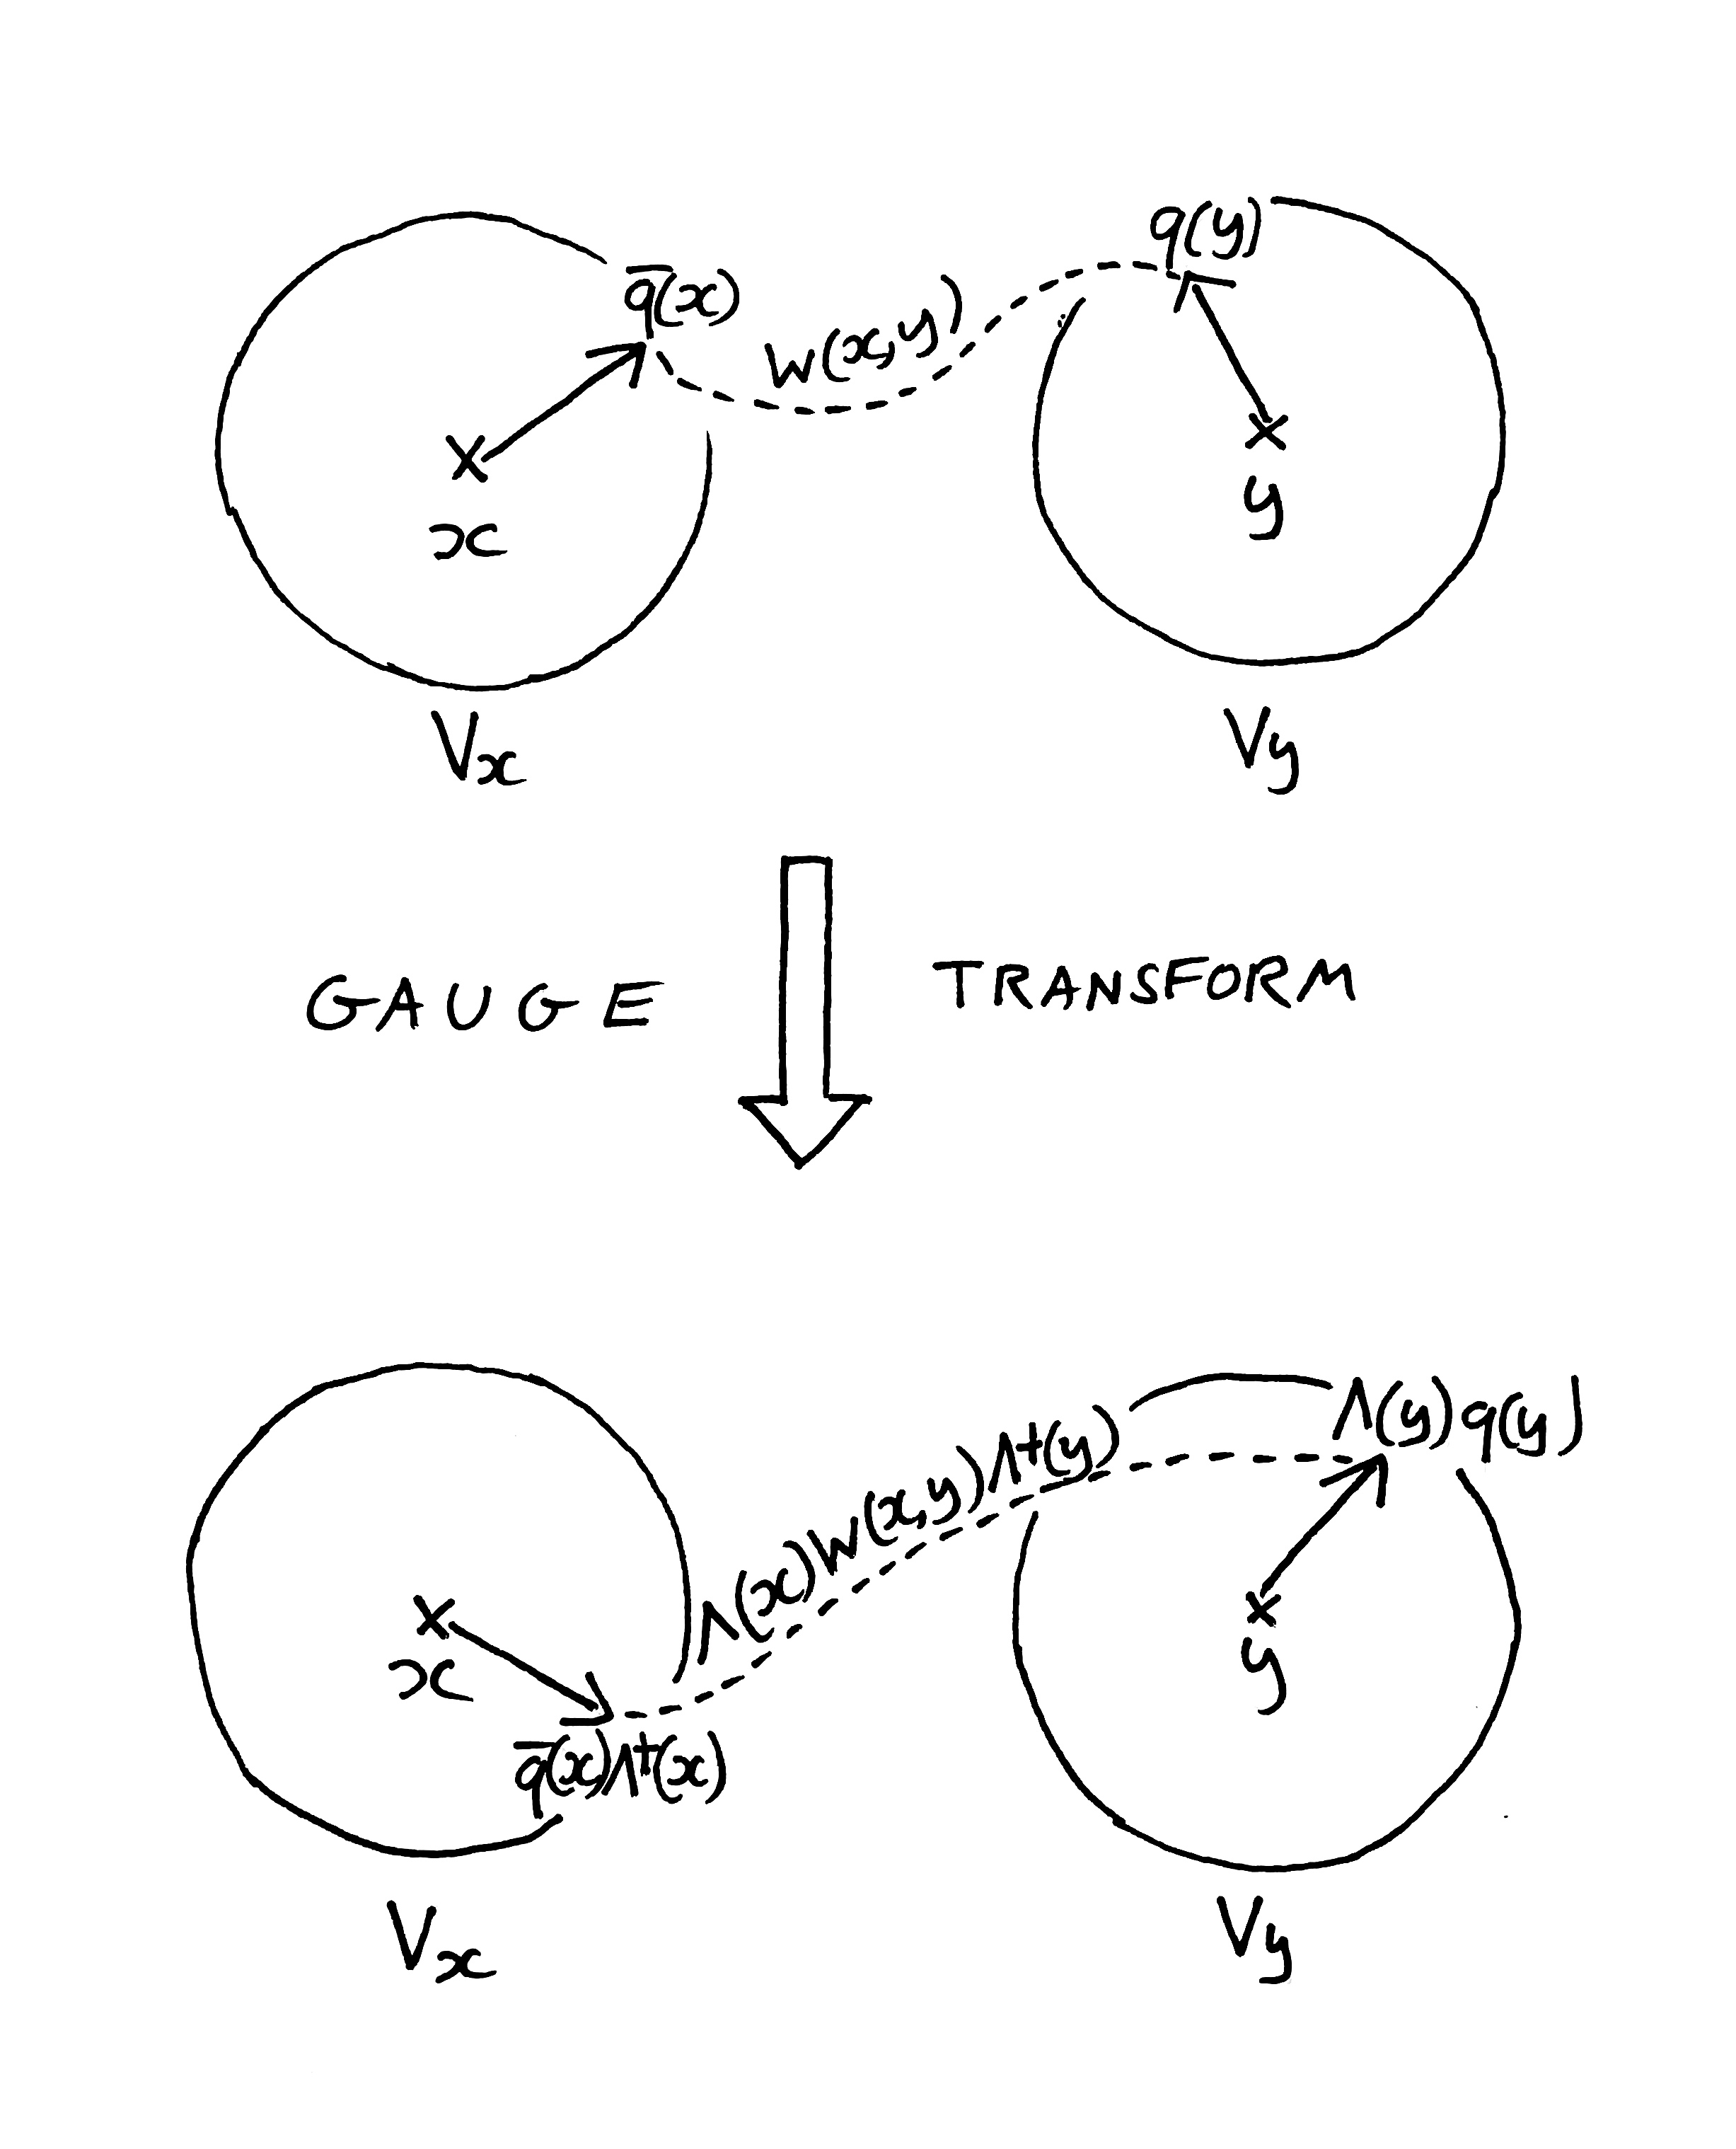 q̅(x)
W(x,y)
q(y)
x
y
Vx
Vy
GAUGE TRANSFORM
Λ(y)q(y)
Λ(x)W(x,y)Λ†(y)
x
y
q̅(x)Λ†(x)
Vx
Vy